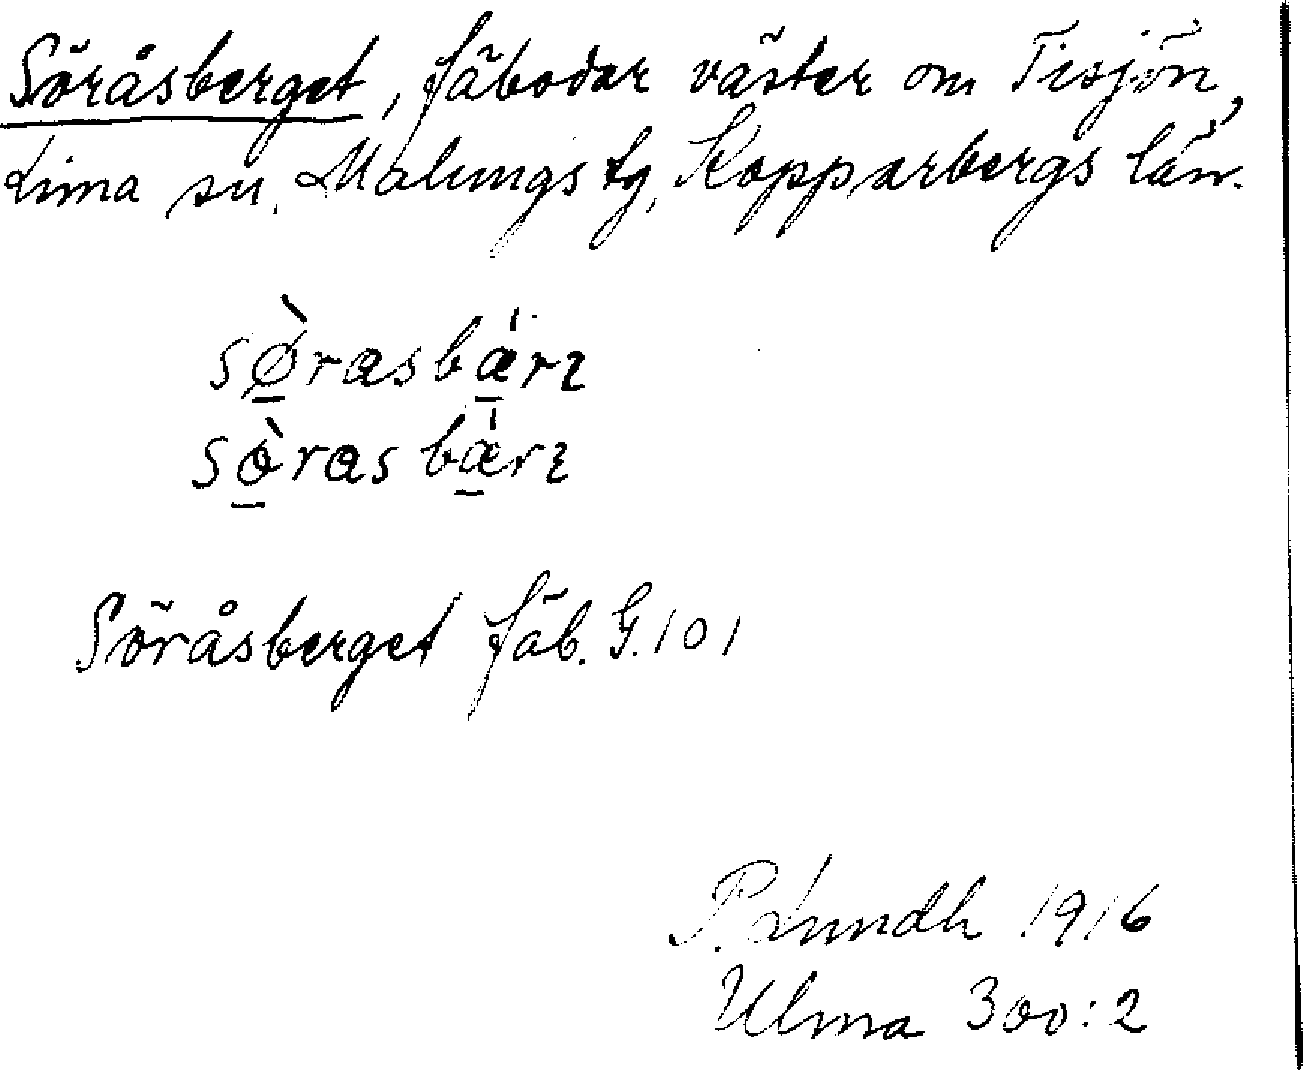 Söråsberget, fäbodar väster om Tisjön,
Lima sn, Malungs tg, Kopparbergs län.
sø̠̀rasbæ̠̍rɩ
sò̠rasbæ̠̍rɩ
Söråsberget fäb. G.101
P. Lundh 1916
Ulma 300:2